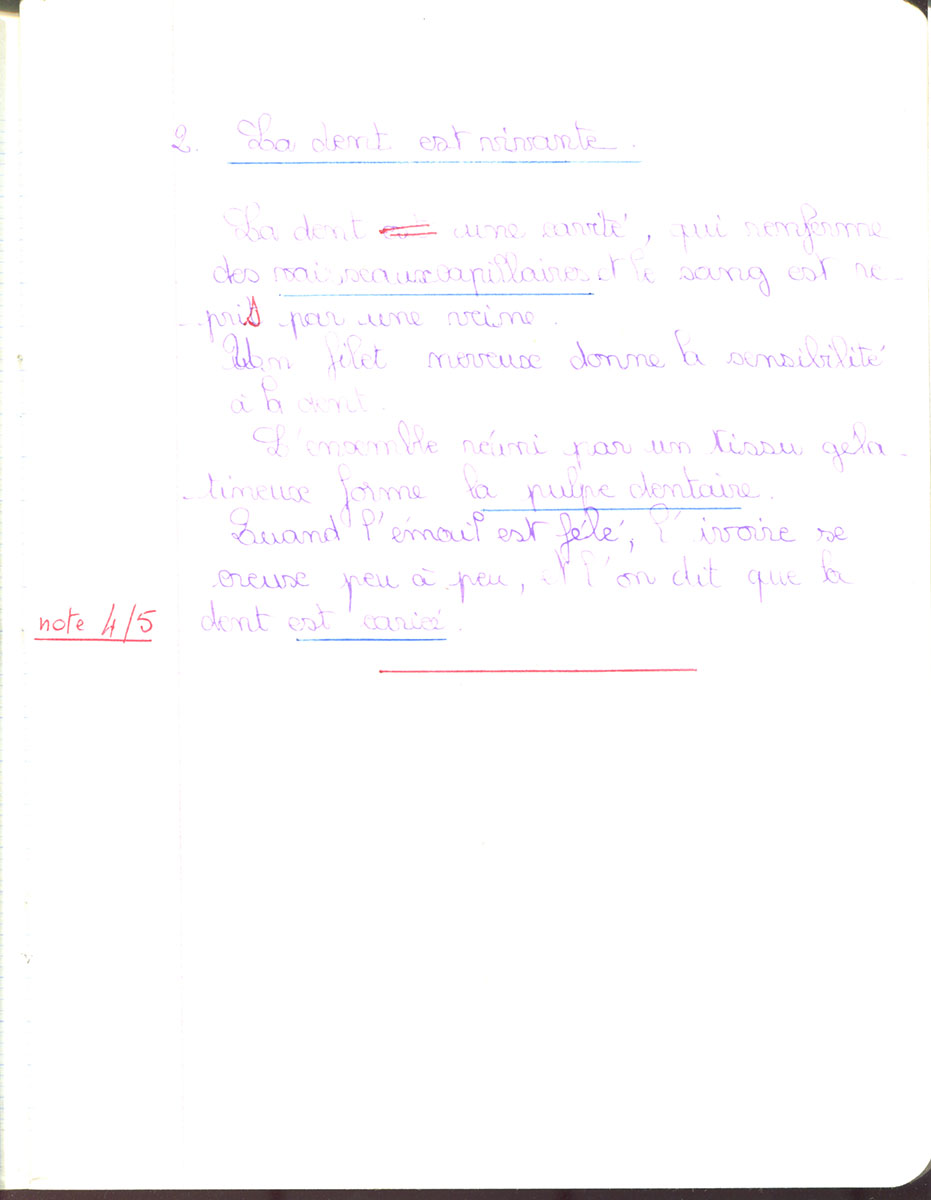 2. La dent est vivante.
La dent est une cavité, qui renferme
des vaisseaux capillaires et le sang est re-
pris par une veine.
Un filet nerveux donne la sensibilité
à la dent.
L'ensemble réuni par un tissu géla-
tineux forme la pulpe dentaire.
Quand l'émail est fêlé, l'ivoire se
creuse peu à peu, et l'on dit que la
note 4/5 dent est cariée.